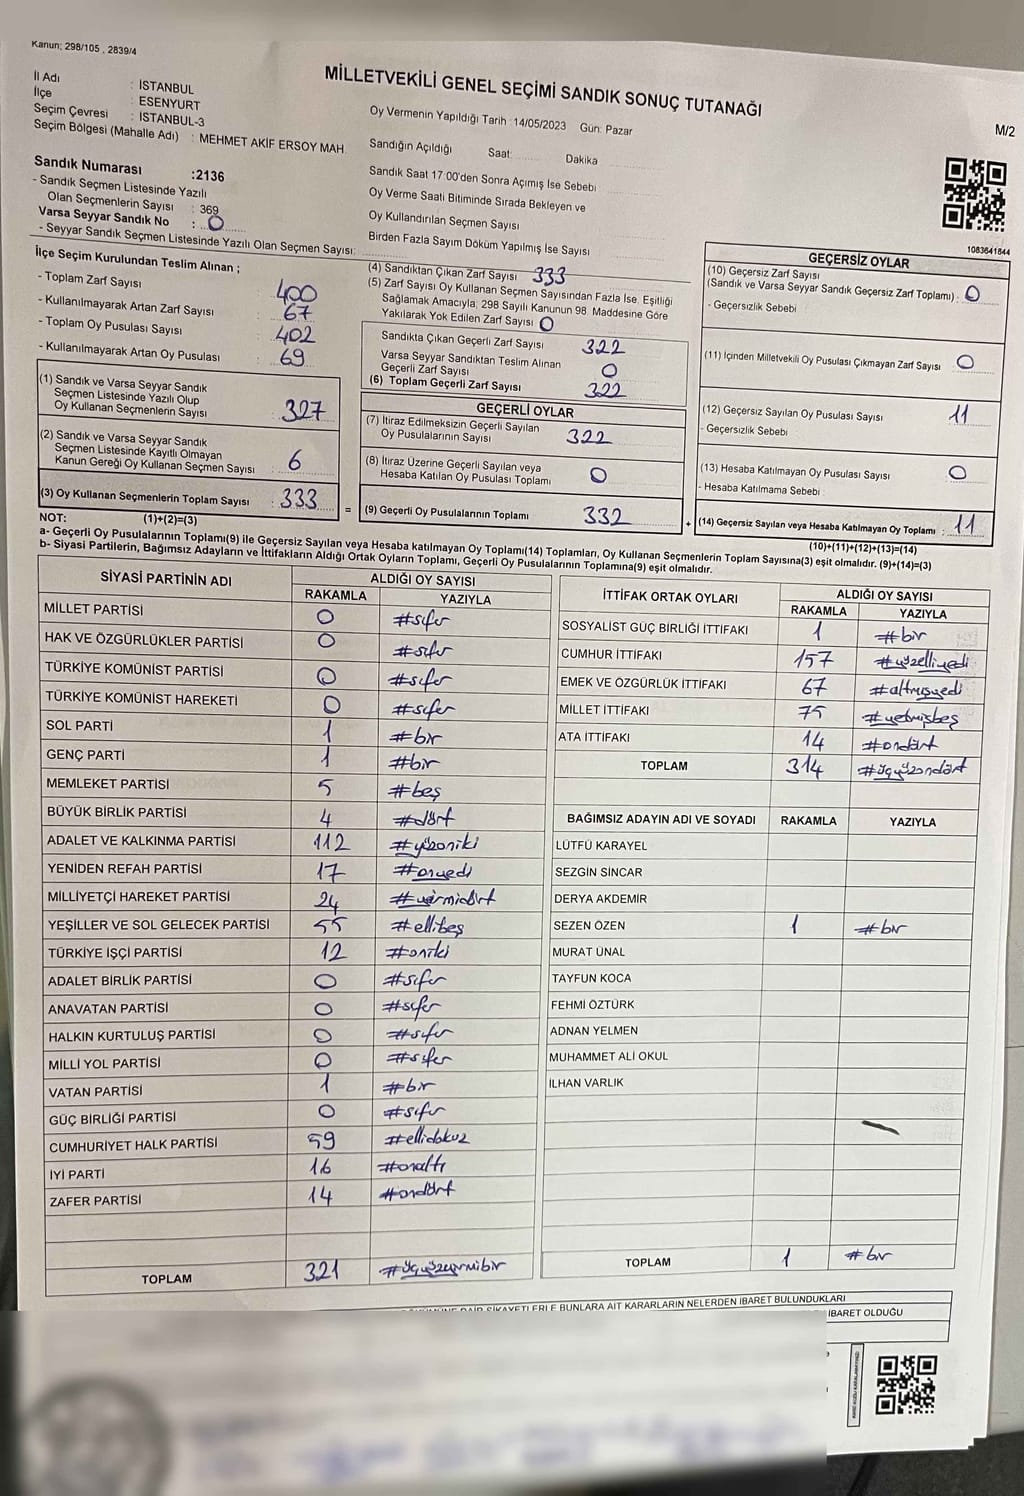 Kanun; 298/105 , 2839/4
MİLLETVEKİLİ GENEL SEÇİMİ SANDIK SONUÇ TUTANAĞI
M/2
İl Adı : İSTANBUL
İlçe : ESENYURT
Seçim Çevresi : İSTANBUL-3
Seçim Bölgesi (Mahalle Adı) : MEHMET AKİF ERSOY MAH.
Oy Vermenin Yapıldığı Tarih :14/05/2023 Gün: Pazar
Sandığın Açıldığı Saat: Dakika
Sandık Saat 17:00'den Sonra Açımış İse Sebebi
Oy Verme Saati Bitiminde Sırada Bekleyen ve
Oy Kullandırılan Seçmen Sayısı
Birden Fazla Sayım Döküm Yapılmış İse Sayısı
Sandık Numarası :2136
- Sandık Seçmen Listesinde Yazılı
Olan Seçmenlerin Sayısı : 369
Varsa Seyyar Sandık No : 0
- Seyyar Sandık Seçmen Listesinde Yazılı Olan Seçmen Sayısı:
1083641844
İlçe Seçim Kurulundan Teslim Alınan ;
- Toplam Zarf Sayısı : 400
- Kullanılmayarak Artan Zarf Sayısı : 67
- Toplam Oy Pusulası Sayısı : 402
- Kullanılmayarak Artan Oy Pusulası : 69
(1) Sandık ve Varsa Seyyar Sandık
Seçmen Listesinde Yazılı Olup
Oy Kullanan Seçmenlerin Sayısı : 327
(2) Sandık ve Varsa Seyyar Sandık
Seçmen Listesinde Kayıtlı Olmayan
Kanun Gereği Oy Kullanan Seçmen Sayısı : 6
(3) Oy Kullanan Seçmenlerin Toplam Sayısı : 333
(1)+(2)=(3)
(4) Sandıktan Çıkan Zarf Sayısı 333
(5) Zarf Sayısı Oy Kullanan Seçmen Sayısından Fazla İse, Eşitliği
Sağlamak Amacıyla; 298 Sayılı Kanunun 98. Maddesine Göre
Yakılarak Yok Edilen Zarf Sayısı 0
Sandıkta Çıkan Geçerli Zarf Sayısı 322
Varsa Seyyar Sandıktan Teslim Alınan
Geçerli Zarf Sayısı 0
(6) Toplam Geçerli Zarf Sayısı 322
GEÇERLİ OYLAR
(7) İtiraz Edilmeksizin Geçerli Sayılan
Oy Pusulalarının Sayısı 322
(8) İtiraz Üzerine Geçerli Sayılan veya
Hesaba Katılan Oy Pusulası Toplamı 0
= (9) Geçerli Oy Pusulalarının Toplamı 332
GEÇERSİZ OYLAR
(10) Geçersiz Zarf Sayısı
(Sandık ve Varsa Seyyar Sandık Geçersiz Zarf Toplamı) : 0
- Geçersizlik Sebebi
(11) İçinden Milletvekili Oy Pusulası Çıkmayan Zarf Sayısı 0
(12) Geçersiz Sayılan Oy Pusulası Sayısı 11
- Geçersizlik Sebebi
(13) Hesaba Katılmayan Oy Pusulası Sayısı 0
- Hesaba Katılmama Sebebi
+ (14) Geçersiz Sayılan veya Hesaba Katılmayan Oy Toplamı : 11
(10)+(11)+(12)+(13)=(14)
NOT:
a- Geçerli Oy Pusulalarının Toplamı(9) ile Geçersiz Sayılan veya Hesaba katılmayan Oy Toplamı(14) Toplamları, Oy Kullanan Seçmenlerin Toplam Sayısına(3) eşit olmalıdır. (9)+(14)=(3)
b- Siyasi Partilerin, Bağımsız Adayların ve İttifakların Aldığı Ortak Oyların Toplamı, Geçerli Oy Pusulalarının Toplamına(9) eşit olmalıdır.
SİYASİ PARTİNİN ADI ALDIĞI OY SAYISI
RAKAMLA YAZIYLA
MİLLET PARTİSİ 0 #sıfır
HAK VE ÖZGÜRLÜKLER PARTİSİ 0 #sıfır
TÜRKİYE KOMÜNİST PARTİSİ 0 #sıfır
TÜRKİYE KOMÜNİST HAREKETİ 0 #sıfır
SOL PARTİ 1 #bir
GENÇ PARTİ 1 #bir
MEMLEKET PARTİSİ 5 #beş
BÜYÜK BİRLİK PARTİSİ 4 #dört
ADALET VE KALKINMA PARTİSİ 112 #yüzoniki
YENİDEN REFAH PARTİSİ 17 #onyedi
MİLLİYETÇİ HAREKET PARTİSİ 24 #yirmidört
YEŞİLLER VE SOL GELECEK PARTİSİ 55 #ellibeş
TÜRKİYE İŞÇİ PARTİSİ 12 #oniki
ADALET BİRLİK PARTİSİ 0 #sıfır
ANAVATAN PARTİSİ 0 #sıfır
HALKIN KURTULUŞ PARTİSİ 0 #sıfır
MİLLİ YOL PARTİSİ 0 #sıfır
VATAN PARTİSİ 1 #bir
GÜÇ BİRLİĞİ PARTİSİ 0 #sıfır
CUMHURİYET HALK PARTİSİ 59 #ellidokuz
İYİ PARTİ 16 #onaltı
ZAFER PARTİSİ 14 #ondört
TOPLAM 321 #üçyüzyirmibir
İTTİFAK ORTAK OYLARI ALDIĞI OY SAYISI
RAKAMLA YAZIYLA
SOSYALİST GÜÇ BİRLİĞİ İTTİFAKI 1 #bir
CUMHUR İTTİFAKI 157 #yüzelliyedi
EMEK VE ÖZGÜRLÜK İTTİFAKI 67 #altmışyedi
MİLLET İTTİFAKI 75 #yetmişbeş
ATA İTTİFAKI 14 #ondört
TOPLAM 314 #üçyüzondört
BAĞIMSIZ ADAYIN ADI VE SOYADI RAKAMLA YAZIYLA
LÜTFÜ KARAYEL
SEZGİN SİNCAR
DERYA AKDEMİR
SEZEN ÖZEN 1 #bir
MURAT ÜNAL
TAYFUN KOCA
FEHMİ ÖZTÜRK
ADNAN YELMEN
MUHAMMET ALİ OKUL
İLHAN VARLIK
TOPLAM 1 #bir
DAİR ŞİKAYETLERLE BUNLARA AİT KARARLARIN NELERDEN İBARET BULUNDUKLARI
İBARET OLDUĞU